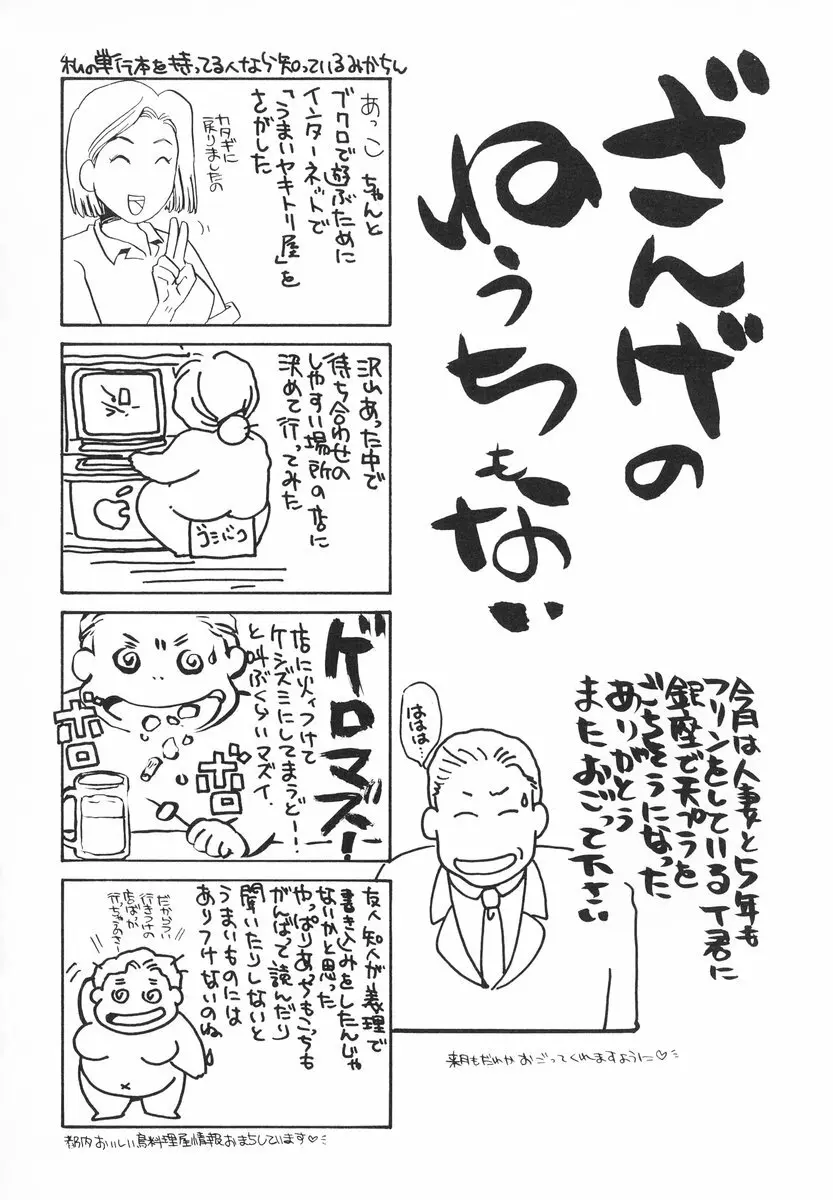 ざんげの
ねうちも
ない
今月は人妻と5年も
フリンをしているT君に
銀座で天プラを
ごちそうになった
ありがとう
またおごって下さい
ははは…
来月もだれかおごってくれますように♡
私の単行本を持ってる人なら知っているみかちん
あっこちゃんと
ブクロで遊ぶために
インターネットで
「うまいヤキトリ屋」を
さがした
カタギに
戻りましたの
沢山あった中で
待ち合わせの
しやすい場所の店に
決めて行ってみた
ゴミバコ
ゲロマズ!
店に火ィつけて
ケシズミにしてまうど──!!
と叫ぶくらいマズイ.
ボロ
ボロ
友人知人が義理で
書き込みをしたんじゃ
ないかと思った
やっぱりあっちもこっちも
がんばって読んだり
聞いたりしないと
うまいものには
ありつけないのね
だからつい
行きつけの
店ばっか
行っちゃうのさー
都内おいしい鳥料理屋情報おまちしています♡